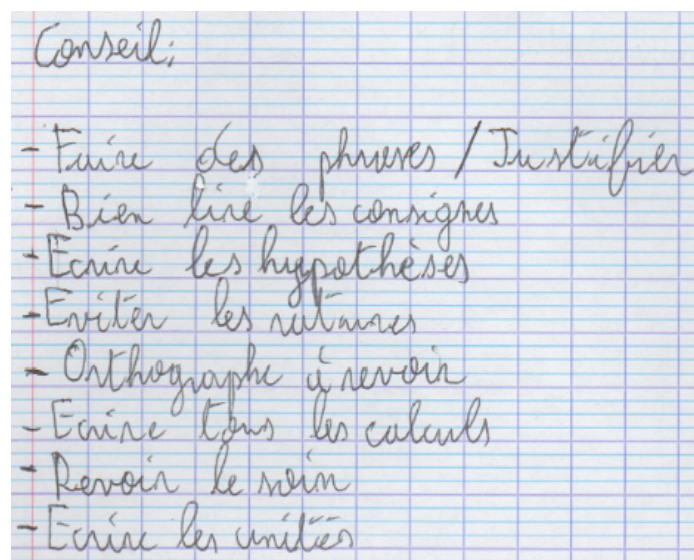 Conseil:
- Faire des phrases / Justifier
- Bien lire les consignes
- Ecrire les hypothèses
- Eviter les ratures
- Orthographe à revoir
- Ecrire tous les calculs
- Revoir le soin
- Ecrire les unités